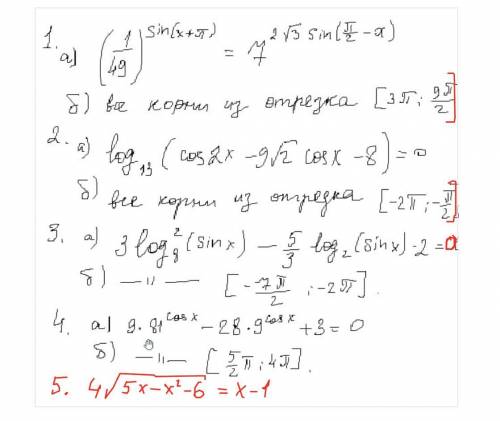 1. а) (1/49)^sin(x+π) = 7^2√3 sin(π/2 −x)
б) все корни из отрезка [3π; 9π/2]
2. а) log₁₃ (cos2x −9√2 cosx −8)=0
б) все корни из отрезка [-2π; -π/2]
3. а) 3log₈²(sinx) − 5/3 log₂(sinx)-2=0
б) —"— [-7π/2 ; -2π].
4. а) 9·81^cosx −28·9^cosx +3=0
б) —"— [5/2 π; 4π].
5. 4√(5x−x²−6) = x−1